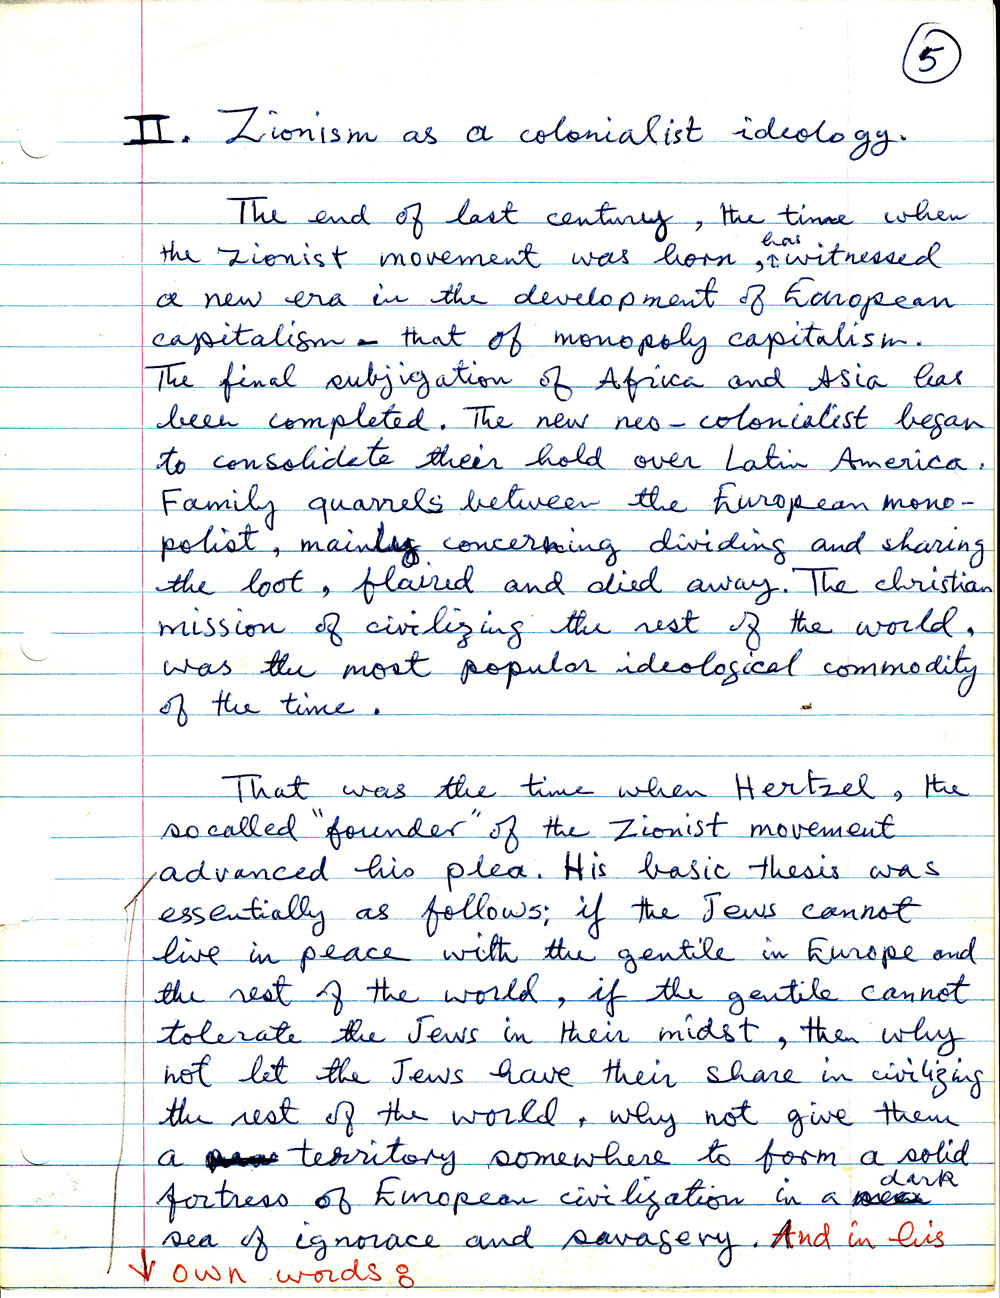 5
II. Zionism as a colonialist ideology.
The end of last century, the time when
the Zionist movement was born, has witnessed
a new era in the development of European
capitalism - that of monopoly capitalism.
The final subjigation of Africa and Asia has
been completed. The new neo-colonialist began
to consolidate their hold over Latin America.
Family quarrels between the European mono-
polist, mainly concerning dividing and sharing
the loot, flaired and died away. The christian
mission of civilizing the rest of the world,
was the most popular ideological commodity
of the time.
That was the time when Hertzel, the
so called "founder" of the Zionist movement
advanced his plea. His basic thesis was
essentially as follows; if the Jews cannot
live in peace with the gentile in Europe and
the rest of the world, if the gentile cannot
tolerate the Jews in their midst, then why
not let the Jews have their share in civilizing
the rest of the world, why not give them
a territory somewhere to form a solid
fortress of European civilization in a dark
sea of ignorace and savagery. And in his
own words: